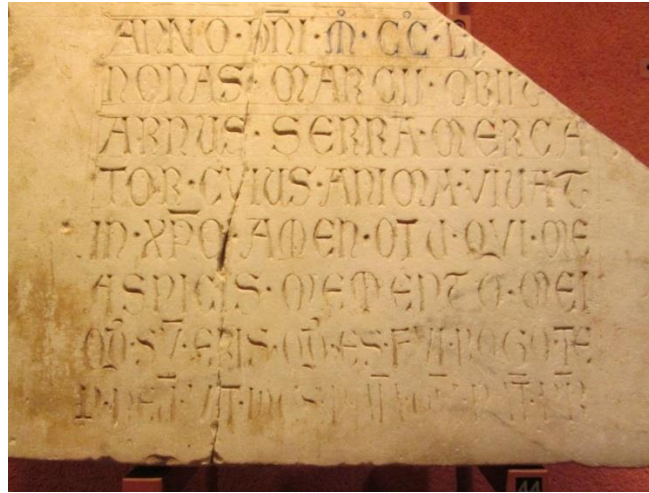 ANNO · DÑI · M̊ · CC̊ · L
NONAS · MARCII · OBIIT
ARNUS · SERRA · MERCA
TOR · CVIUS · ANIMA · VIVAT
IN · XP̄O · AMEN · O TU · QVI · ME
ASPICIS · MEMENTO · MEI
QD̄ · SV̄ · ERIS · QD̄ · ES · FVI · ROGO · TE
UT
44